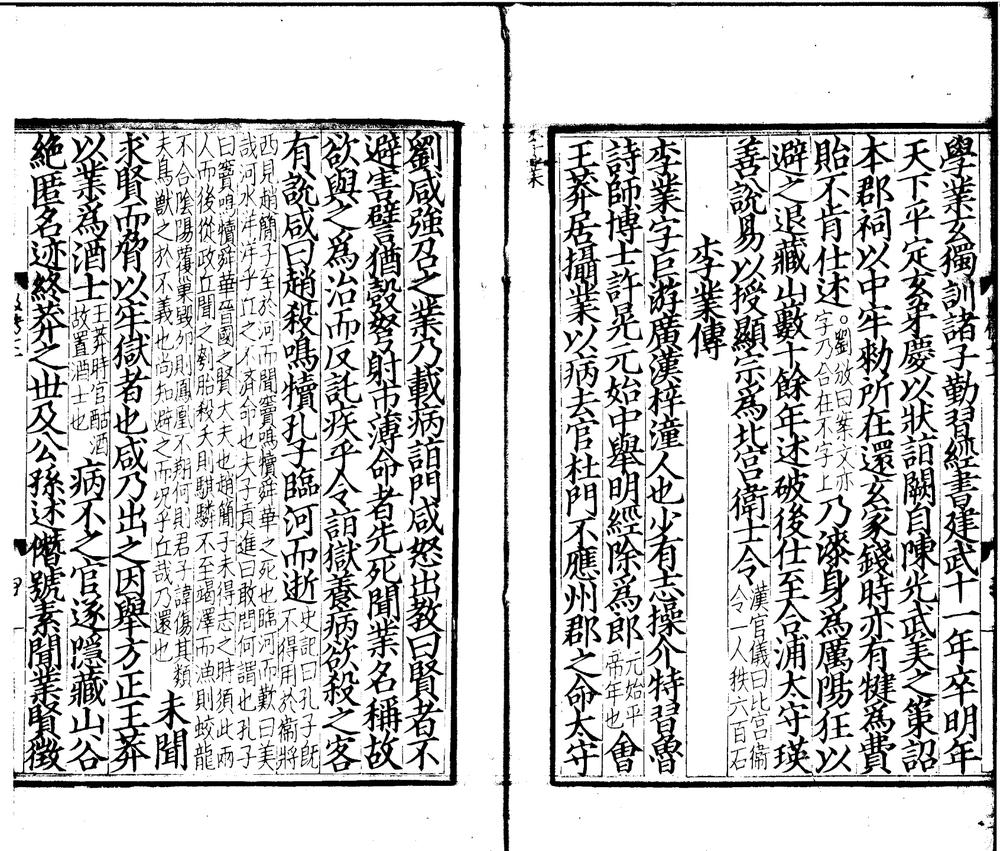 學業玄獨訓諸子勤習經書建武十一年卒明年
天下平定玄弟慶以狀詣闕自陳光武美之策詔
本郡祠以中牢勑所在還玄家錢時亦有犍為費
貽不肯仕述。劉攽曰案文亦字乃合在不字上乃漆身為厲陽狂以
避之退藏山藪十餘年述破後仕至合浦太守瑛
善說易以授顯宗為北宮衛士令漢官儀曰北宮衛令一人秩六百石
李業傳
李業字巨游廣漢梓潼人也少有志操介特習魯
詩師博士許晃元始中舉明經除為郎元始平帝年也會
王莽居攝業以病去官杜門不應州郡之命太守
劉咸強召之業乃載病詣門咸怒出教曰賢者不
避害譬猶彀弩射市薄命者先死聞業名稱故
欲與之為治而反託疾乎令詣獄養病欲殺之客
有說咸曰趙殺鳴犢孔子臨河而逝史記曰孔子旣不得用於衞將
西見趙簡子至於河而聞竇鳴犢舜華之死也臨河而歎曰美
哉河水洋洋乎丘之不濟命也夫子貢進曰敢問何謂也孔子
曰竇鳴犢舜華晉國之賢大夫也趙簡子未得志之時須此兩
人而後從政丘聞之刳胎殺夭則騏驎不至竭澤而漁則蛟龍
不合陰陽覆巢毀卵則鳳凰不翔何則君子諱傷其類
夫鳥獸之於不義也尚知避之而況乎丘哉乃還也未聞
求賢而脅以牢獄者也咸乃出之因舉方正王莽
以業為酒士王莽時官酤酒故置酒士也病不之官遂隱藏山谷
絕匿名迹終莽之世及公孫述僭號素聞業賢徵